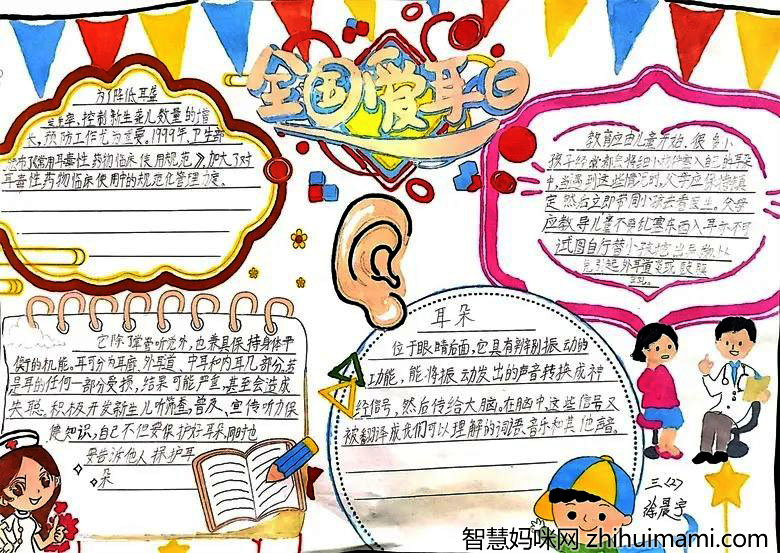 全国爱耳日
为了降低耳聋
发生率,控制新生聋儿数量的增
长,预防工作尤为重要。1999年,卫生部
发布《常用耳毒性药物临床使用规范》,加大了对
耳毒性药物临床使用中的规范化管理力度。
教育应由儿童开始,很多小
孩子经常都会将细小物件塞入自己的耳朵
中,当遇到这些情况时,父母应保持镇
定,然后立即带同小孩去看医生。父母
应教导儿童不要乱塞东西入耳亦不可
试图自行替小孩挖出异物,以
免引起外耳道发炎或鼓膜
它除了掌管听觉外,也兼具保持身体平
衡的机能。耳可分为耳廓、外耳道、中耳和内耳几部分,若
是耳的任何一部分受损,结果可能严重,甚至会造成
失聪。积极开发新生儿听筛查,普及、宣传听力保
健知识,自己不但要保护好耳朵,同时也
要告诉他人保护耳
朵
耳朵
位于眼睛后面,它具有辨别振动的
功能,能将振动发出的声音转换成神
经信号,然后传给大脑。在脑中,这些信号又
被翻译成我们可以理解的词语、音乐和其他声音。
三(2)
徐晨宇
智慧妈咪网 zhihuimami.com